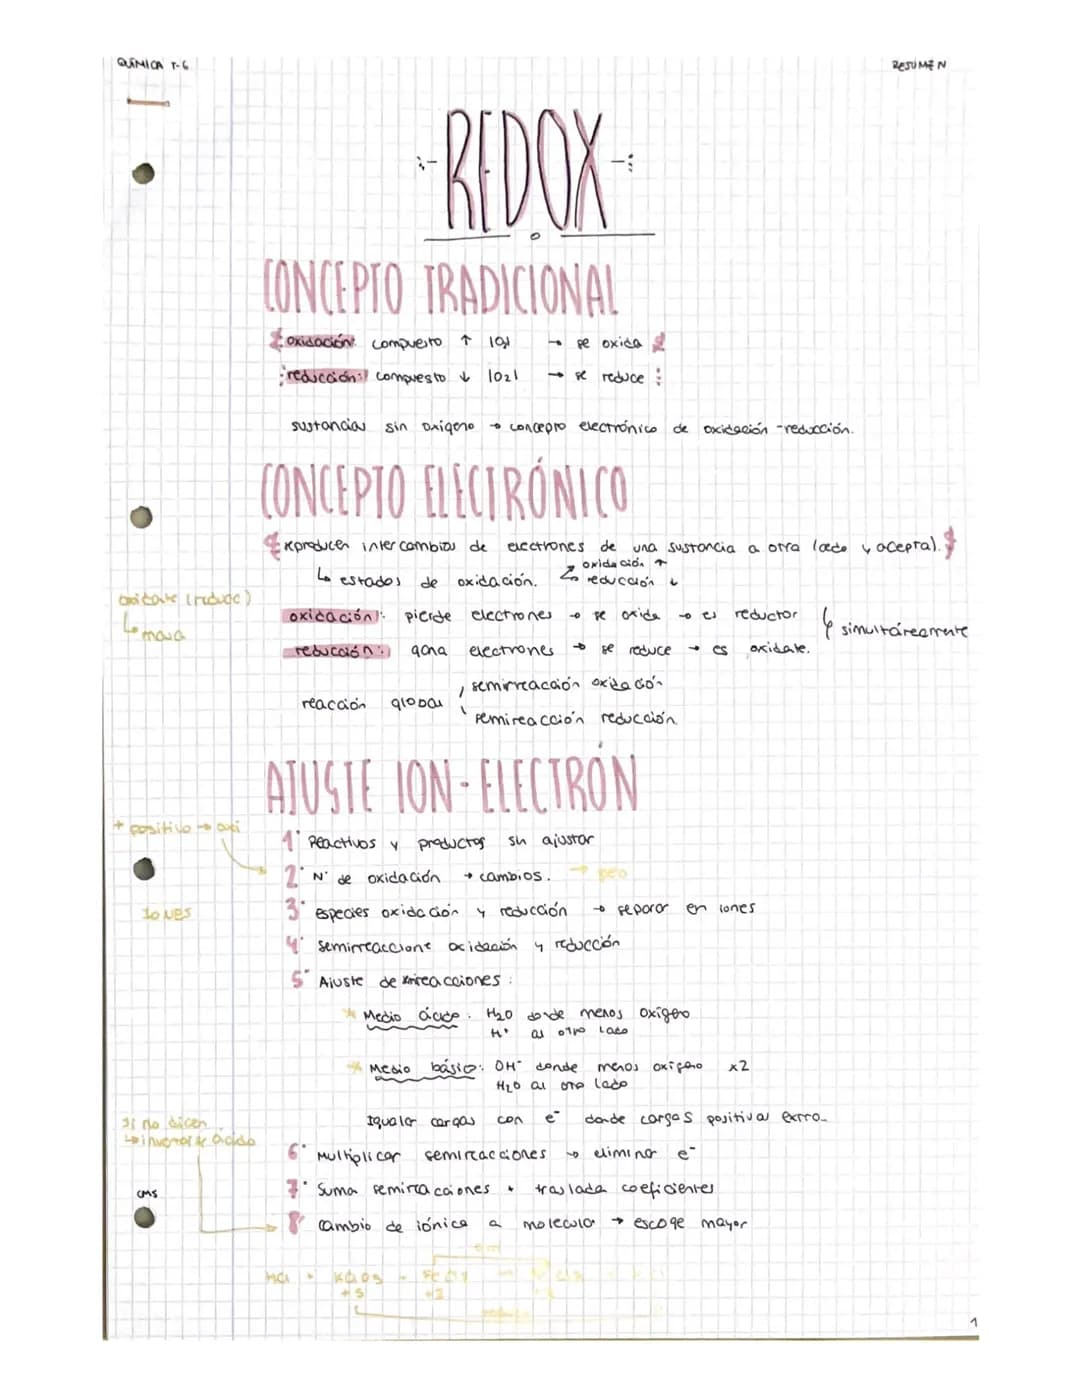 QUÍMICA T-6
RESUMEN
REDOX
CONCEPTO TRADICIONAL
oxidación: compuesto ↑ |O2| → se oxida
reducción: compuesto ↓ |O2| → se reduce
sustancias sin oxígeno → concepto electrónico de oxidación-reducción.
CONCEPTO ELECTRÓNICO
producen intercambios de electrones de una sustancia a otra (cede y acepta).
↳ estados de oxidación.
oxidación ↑
reducción ↓
oxidante (reduce)
oxidación: pierde electrones → se oxida → es reductor
simultáneamente
reducción: gana electrones → se reduce → es oxidate.
reacción global
semirreacción oxidación
semireacción reducción
AJUSTE ION-ELECTRÓN
+ positivo → oxi
1° Reactivos y productos sin ajustar
2° N° de oxidación → cambios.
IONES
3° especies oxidación y reducción → separar en iones
4° semirreaccione oxidación y reducción
5° Ajuste de reacciones:
* Medio ácido: H2O donde menos oxígeno
H+ al otro lado
* Medio básico: OH- donde menos oxígeno x2
H2O al otro lado
Igualar cargas con e- donde cargas positivas extra
si no dicen
6° Multiplicar semireacciones → eliminar e-
7° Suma semireacciones + traslada coeficientes
CMS
8° Cambio de iónica a molecula → escoge mayor
+5
+2
1